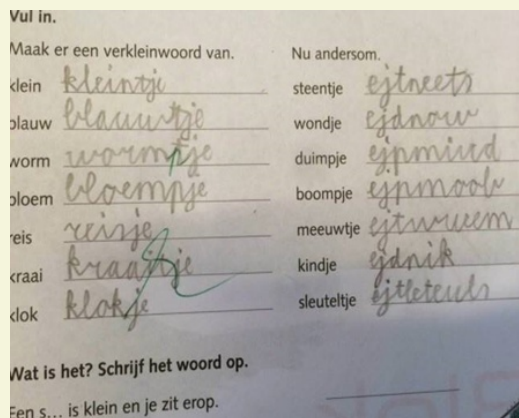 Vul in.
Maak er een verkleinwoord van.
klein kleintje
blauw blauwtje
worm wormpje
bloem bloempje
reis reisje
kraai kraaitje
klok klokje
Nu andersom.
steentje ejtneets
wondje ejdnow
duimpje ejpmiud
boompje ejpmoob
meeuwtje ejtwueem
kindje ejdnik
sleuteltje
Wat is het? Schrijf het woord op.
Een s... is klein en je zit erop.